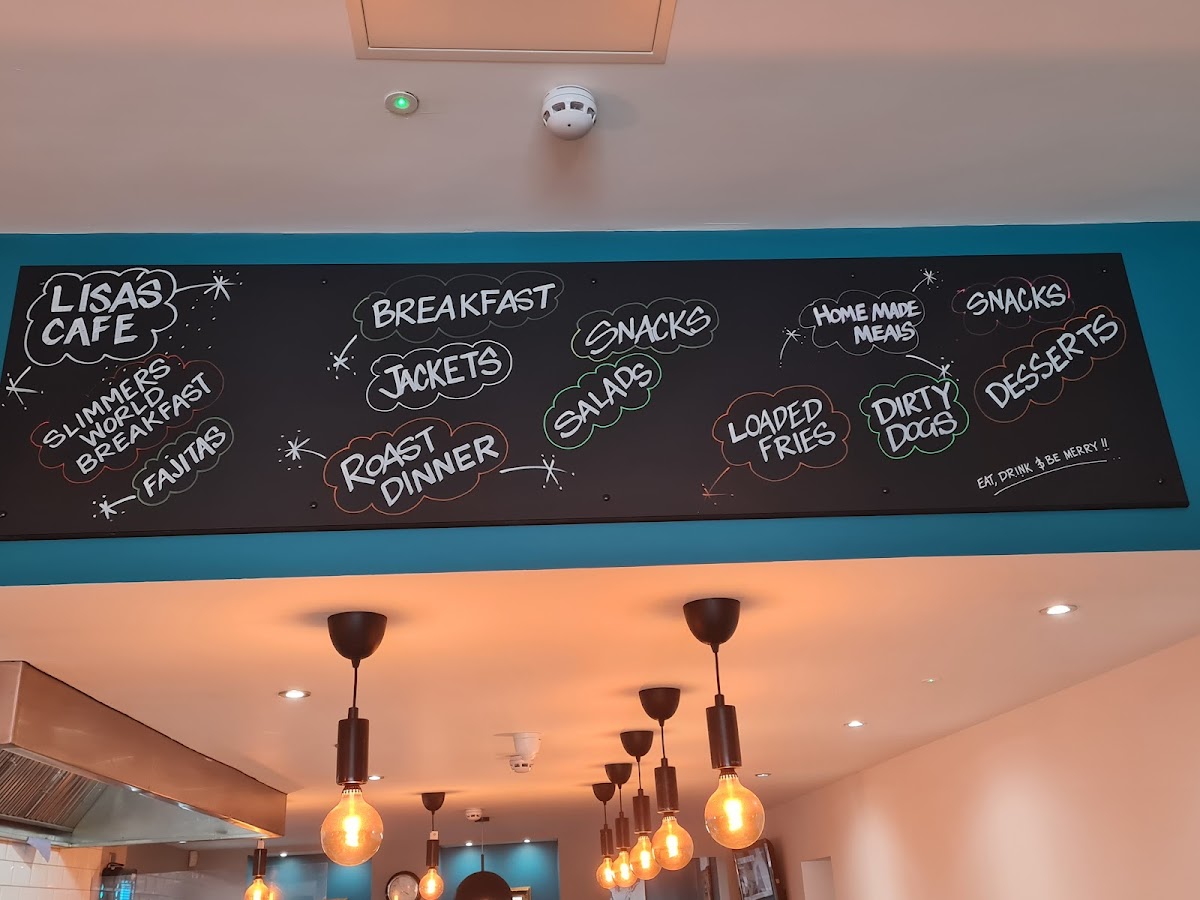 LISA'S
CAFE
SLIMMERS
WORLD
BREAKFAST
FAJITAS
BREAKFAST
JACKETS
ROAST
DINNER
SNACKS
SALADS
HOME MADE
MEALS
LOADED
FRIES
DIRTY
DOGS
SNACKS
DESSERTS
EAT, DRINK & BE MERRY!!